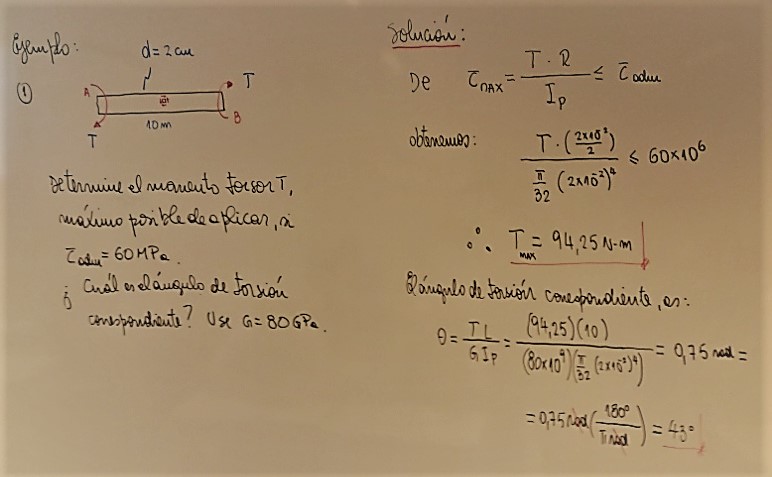 Ejemplo:
①
d = 2 cm
A
T
T
B
10 m
Determine el momento torsor T,
máximo posible de aplicar, si
τadm = 60 MPa.
¿Cuál es el ángulo de torsión
correspondiente? Use G = 80 GPa.
Solución:
De τMAX = T · R / Ip ≤ τadm
obtenemos: T · (2x10⁻²/2) / (π/32 (2x10⁻²)⁴) ≤ 60x10⁶
∴ Tmax = 94,25 N-m
El ángulo de torsión correspondiente, es:
θ = TL / GIp = (94,25)(10) / ((80x10⁹)(π/32 (2x10⁻²)⁴)) = 0,75 rad =
= 0,75 rad (180° / π rad) = 43°